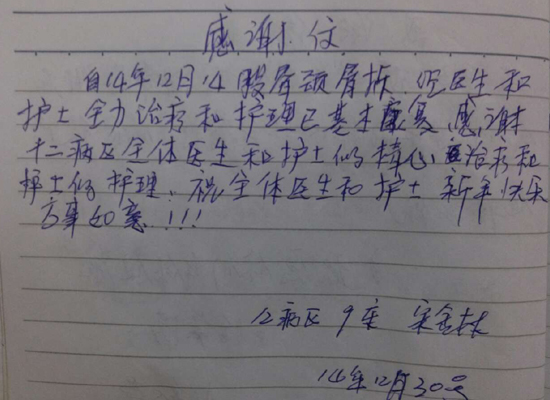 感谢信
自14年12月14股骨颈骨折.经医生和
护士全力治疗和护理已基本康复,感谢
十二病区全体医生和护士们精心治疗和
护士们护理.祝全体医生和护士新年快乐
万事如意.!!!
病区9床 宋金林
14年12月30号